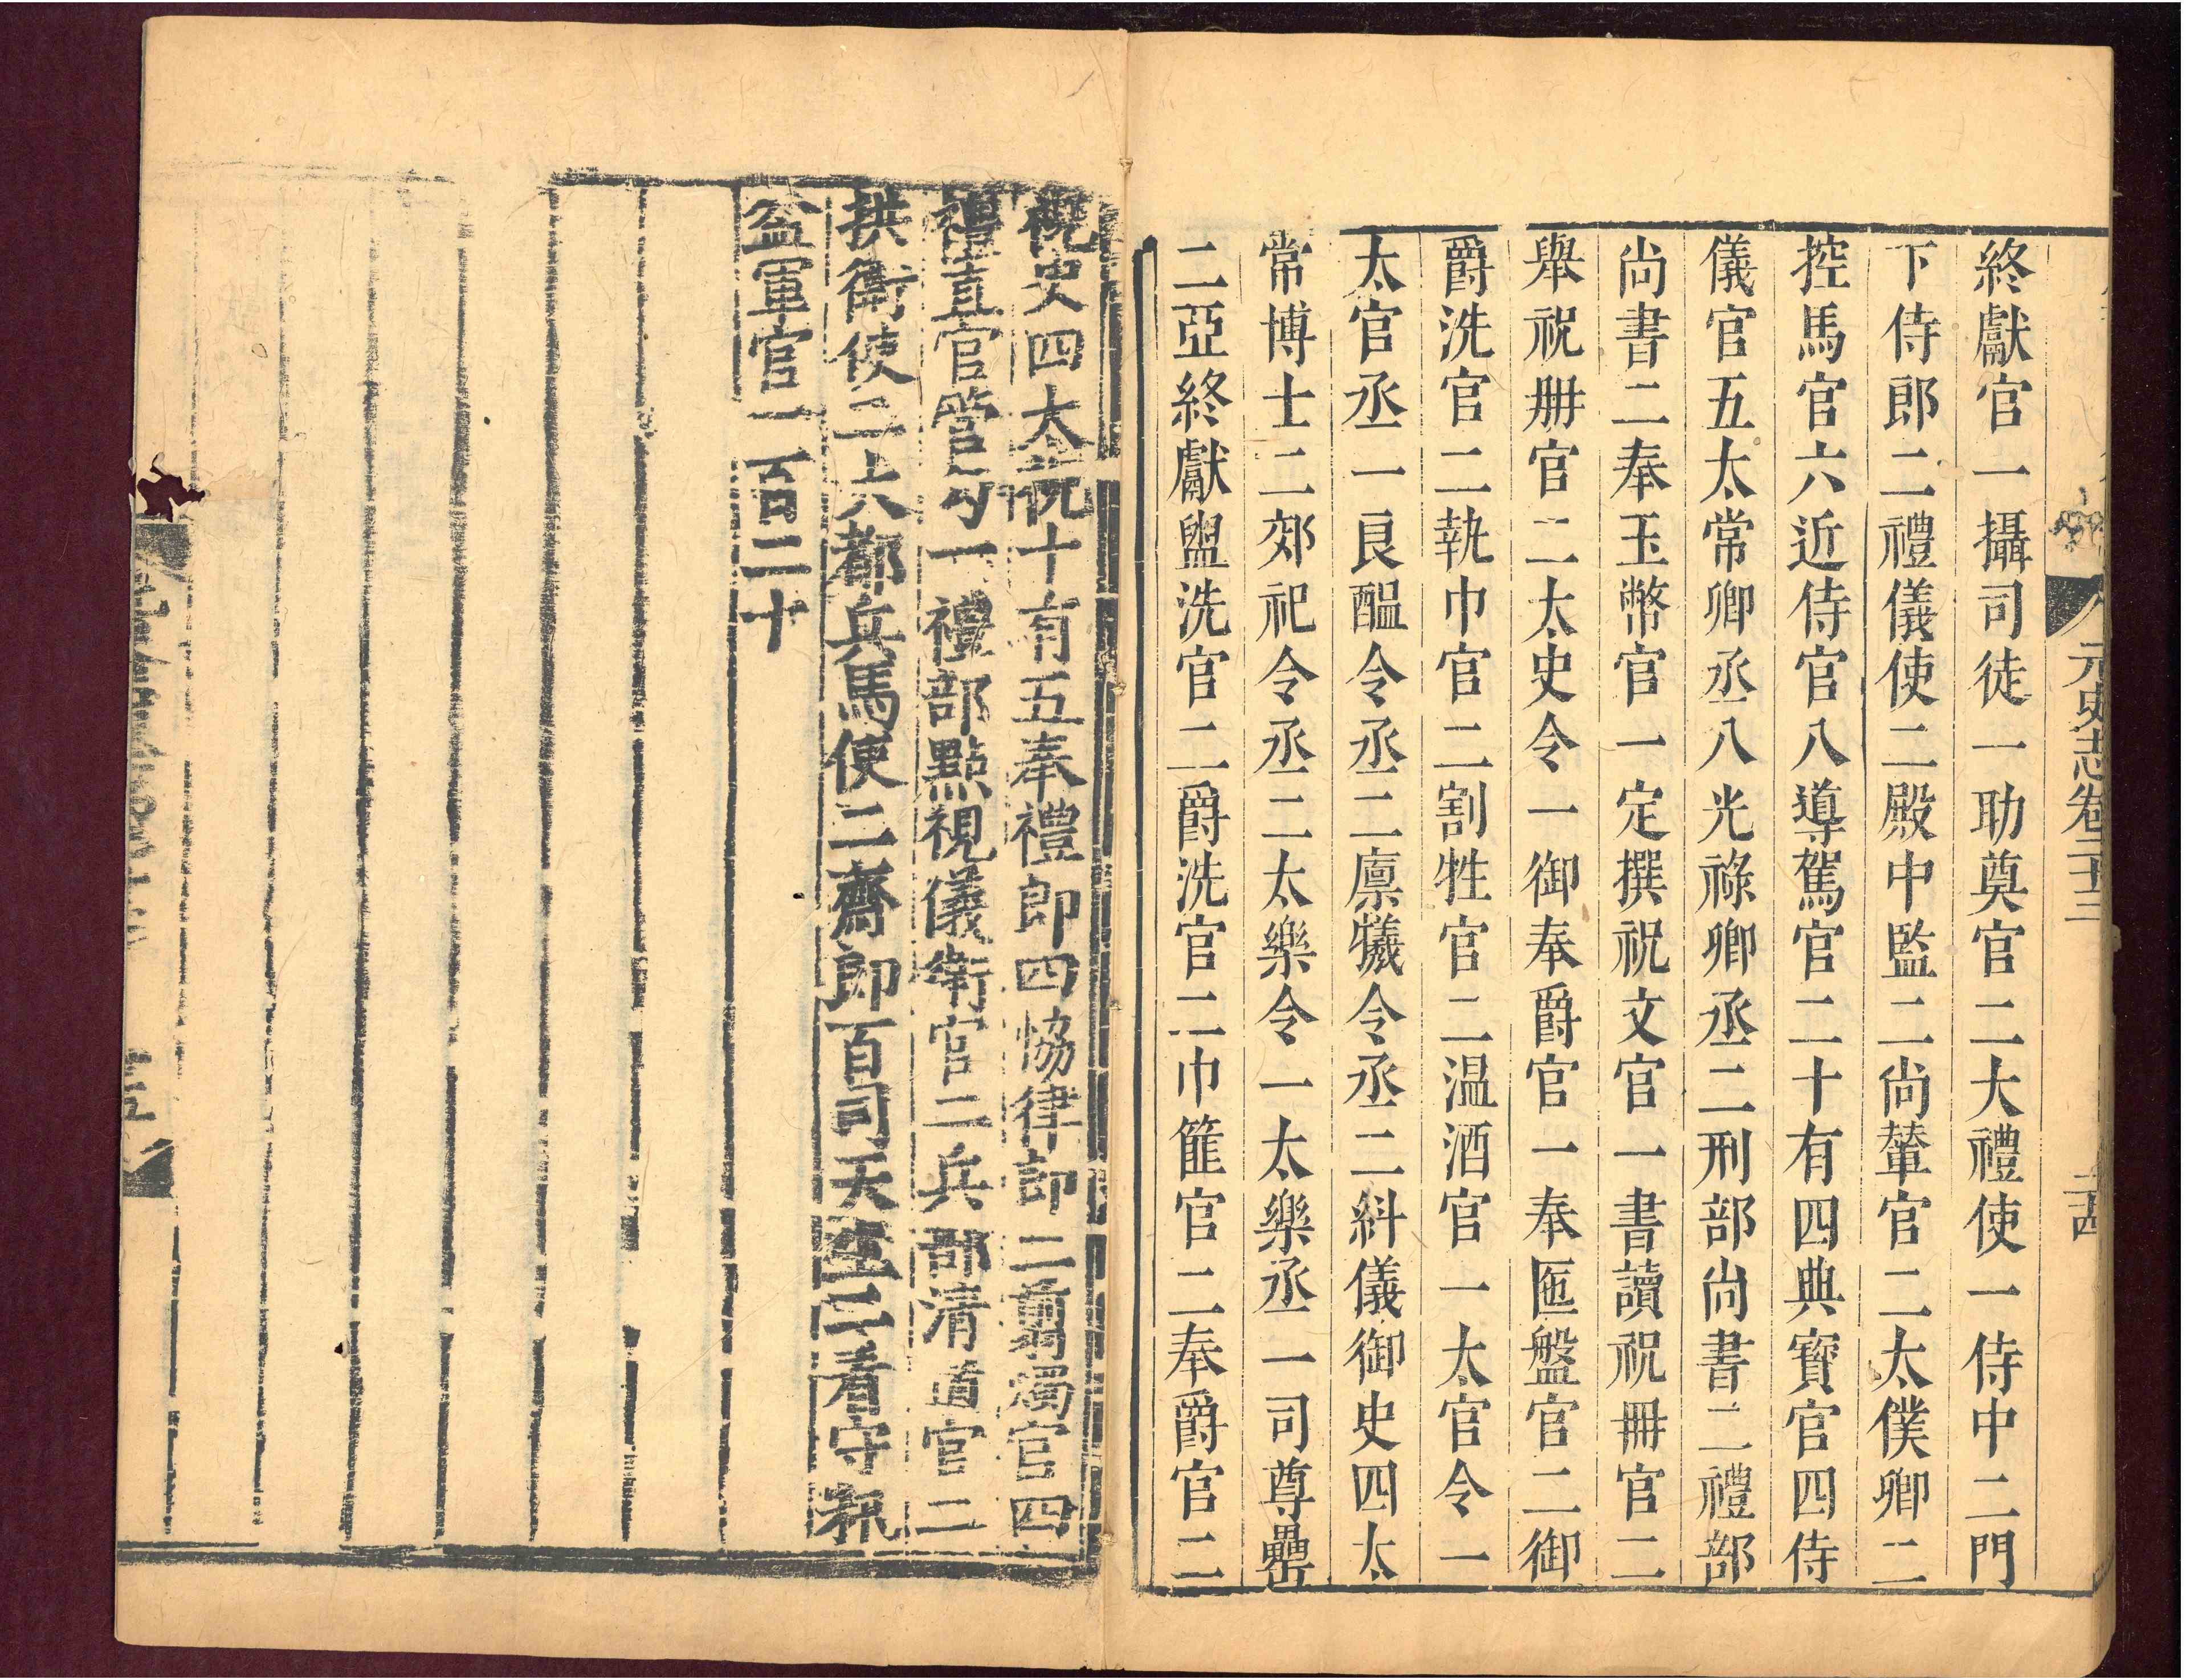 元史志卷二十三
二十四
終獻官一攝司徒一助奠官二大禮使一侍中二門
下侍郎二禮儀使二殿中監二尚輦官二太僕卿二
控馬官六近侍官八導駕官二十有四典寶官四侍
儀官五太常卿丞八光祿卿丞二刑部尚書二禮部
尚書二奉玉幣官一定撰祝文官一書讀祝冊官二
舉祝册官二太史令一御奉爵官一奉匜盤官二御
爵洗官二執巾官二割牲官二温酒官一太官令一
太官丞一良醞令丞二廪犧令丞二糾儀御史四太
常博士二郊祀令丞二太樂令一太樂丞一司尊罍
二亞終獻盥洗官二爵洗官二巾篚官二奉爵官二
祝史四太祝十有五奉禮郎四協律郎二翦燭官四
禮直官管勾一禮部點視儀衛官二兵部清道官二
拱衛使二大都兵馬使二齋郎百司天生二看守糀
盆軍官一百二十